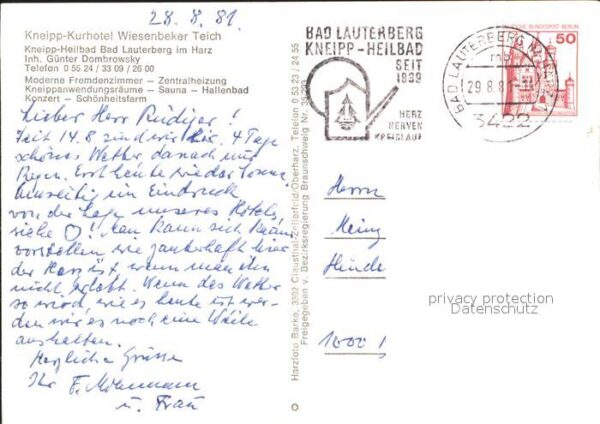 28.8.81.
Kneipp-Kurhotel Wiesenbeker Teich
Kneipp-Heilbad Bad Lauterberg im Harz
Inh. Günter Dombrowsky
Telefon 0 55 24 / 33 09 / 26 00
Moderne Fremdenzimmer – Zentralheizung
Kneippanwendungsräume – Sauna – Hallenbad
Konzert – Schönheitsfarm
Lieber Herr Rüdiger!
Seit 14.8. sind wir hier. 4 Tage
schönes Wetter danach nur
Regen. Erst heute wieder Sonne
ein Eindruck
von der Lage unseres Hotels,
siehe ♡! Man kann sich kaum
vorstellen wie zauberhaft hier
der Harz ist, wenn man ihn
nicht erlebt. Wenn das Wetter
so wird, wie es heute ist wer-
den wir es noch eine Weile
aushalten.
Herzliche Grüsse
Ihr F.
u. Frau
Harzfoto Barke, 3392 Clausthal-Zellerfeld/Oberharz, Telefon 0 53 23 / 24 55
Freigegeben v. Bezirksregierung Braunschweig Nr.
BAD LAUTERBERG
KNEIPP-HEILBAD
SEIT
1839
HERZ
NERVEN
KREISLAUF
BAD LAUTERBERG IM HARZ
29.8.81
3422
DEUTSCHE BUNDESPOST BERLIN
50
Herrn
Heinz
1000 1
privacy protection
Datenschutz